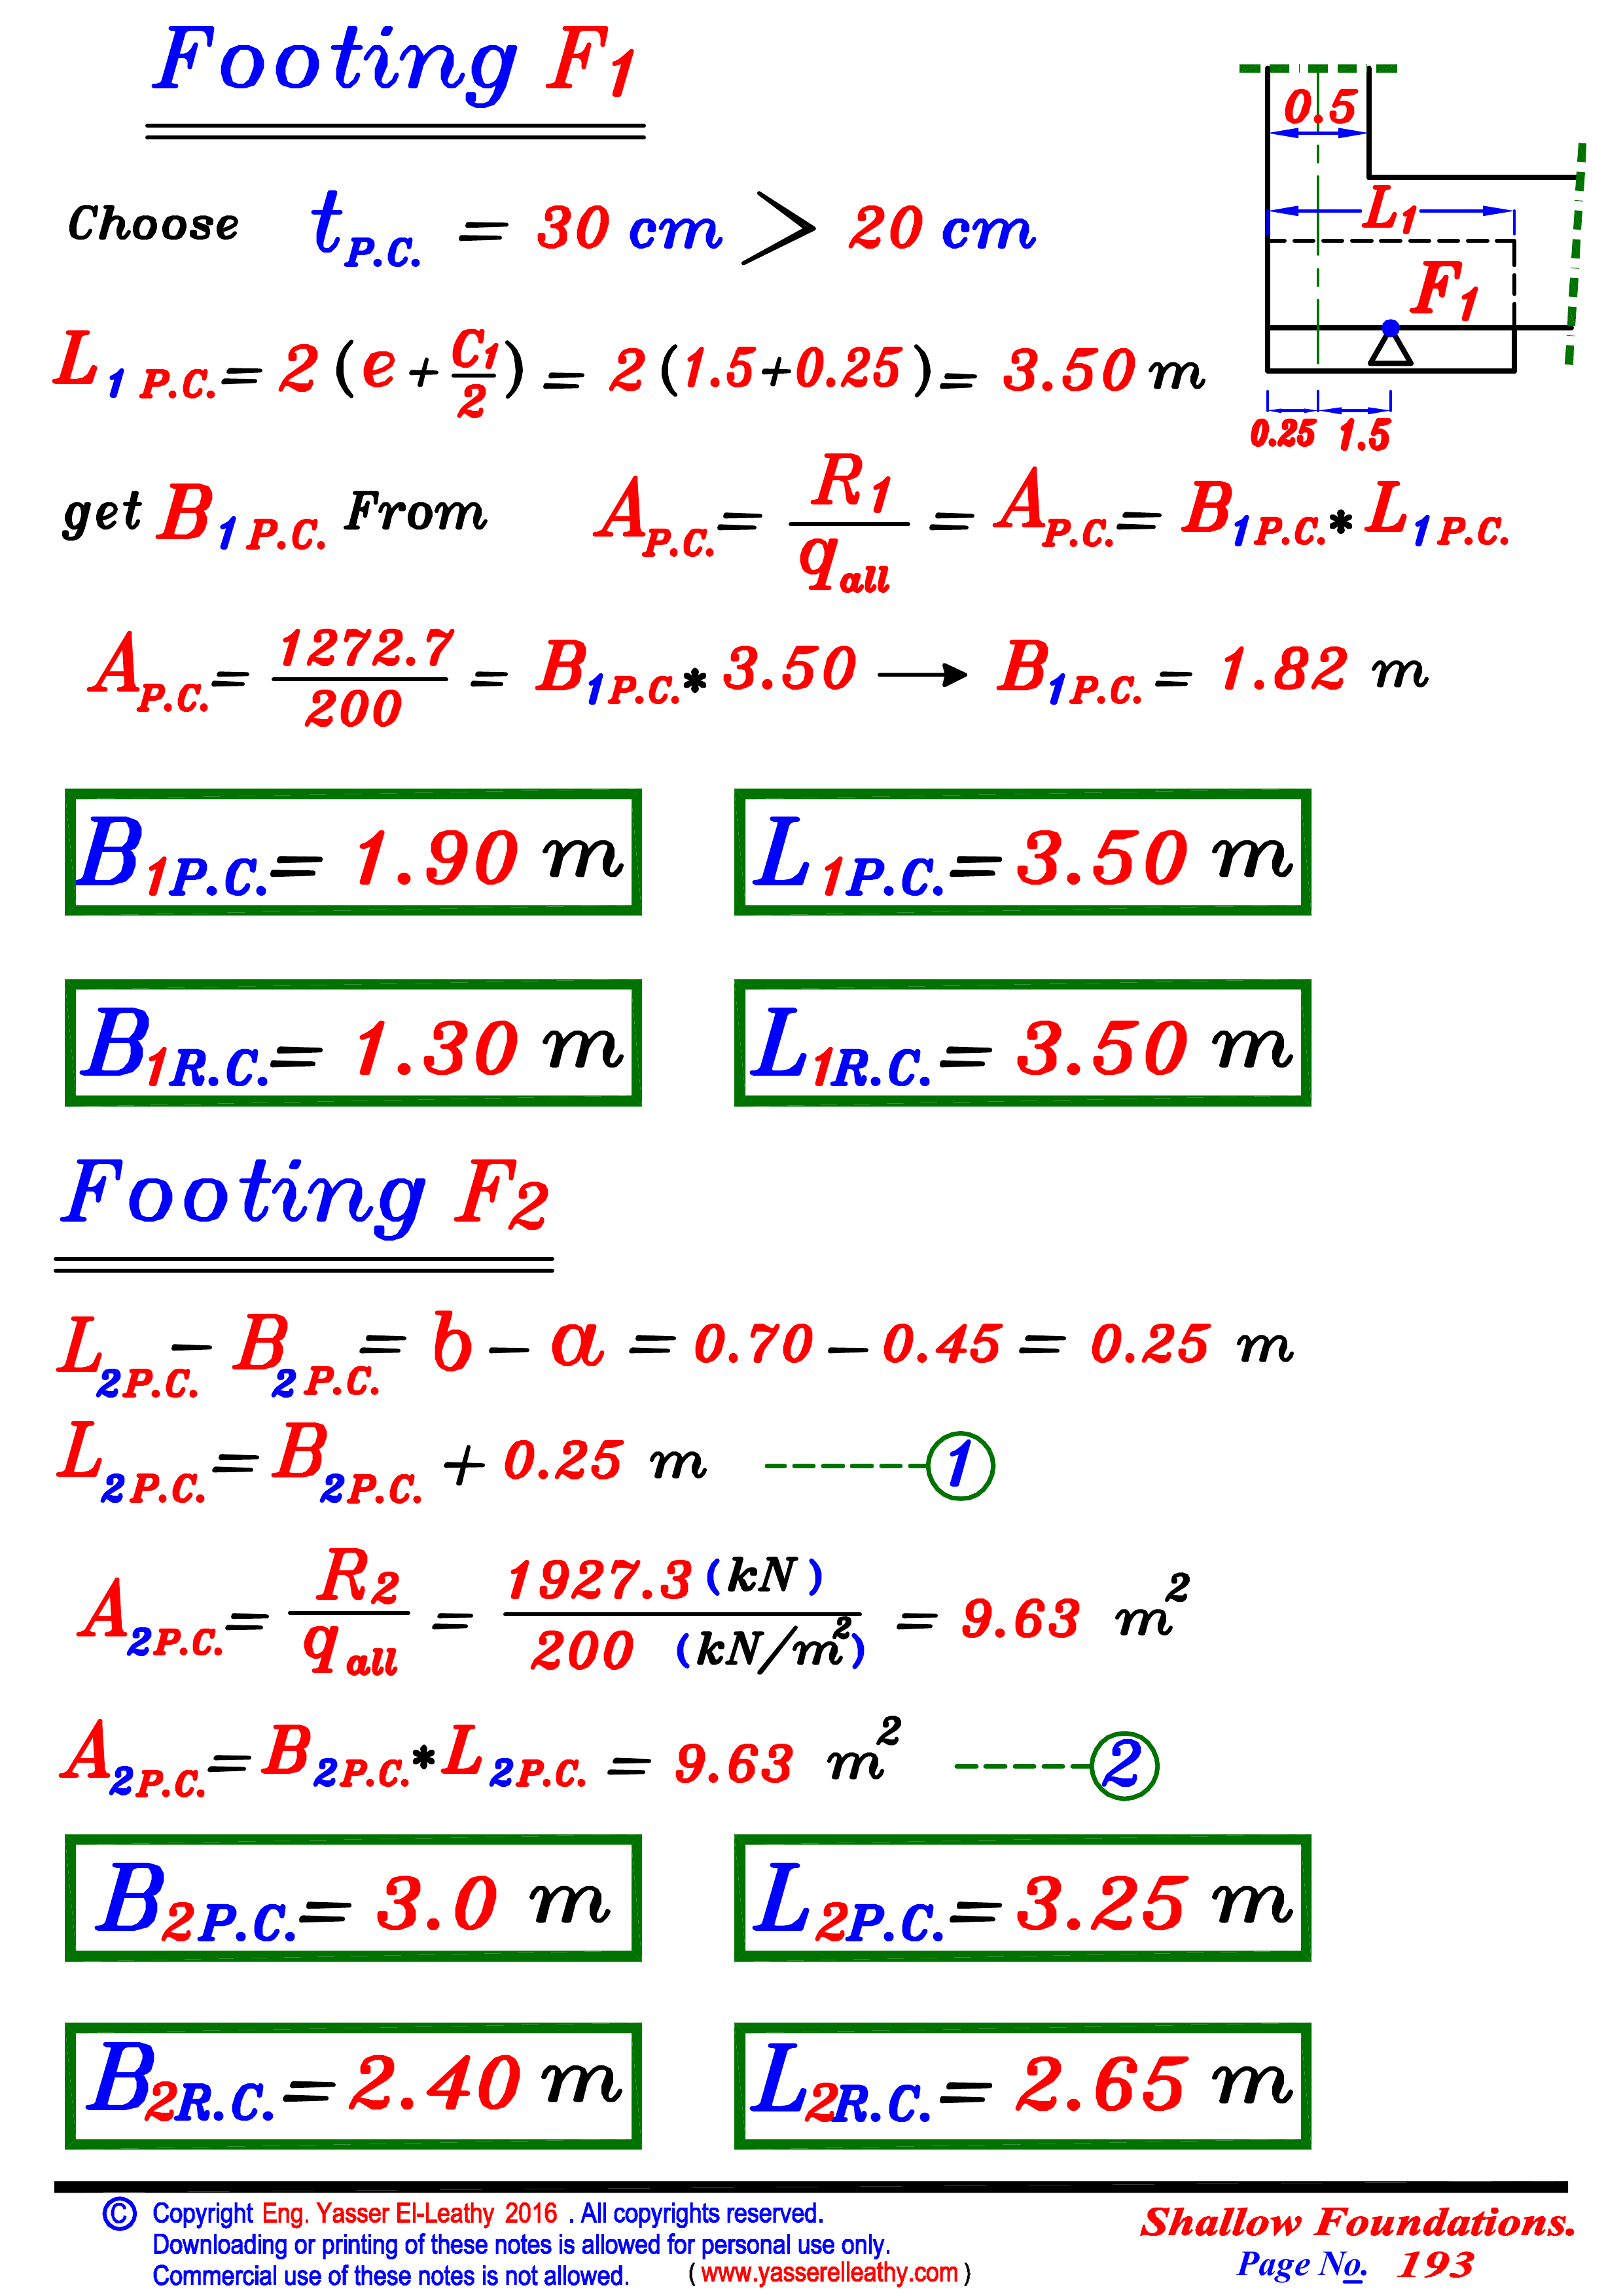 Footing F1
0.5
Choose t P.C. = 30 cm > 20 cm
L1
F1
L1 P.C. = 2 (e + C1/2) = 2 (1.5+0.25) = 3.50 m
0.25 1.5
get B1 P.C. From A P.C. = R1/q all = A P.C. = B1P.C. * L1P.C.
A P.C. = 1272.7/200 = B1P.C. * 3.50 → B1P.C. = 1.82 m
B1P.C. = 1.90 m L1P.C. = 3.50 m
B1R.C. = 1.30 m L1R.C. = 3.50 m
Footing F2
L2P.C. – B2P.C. = b – a = 0.70 – 0.45 = 0.25 m
L2P.C. = B2P.C. + 0.25 m ------ 1
A2P.C. = R2/q all = 1927.3 (kN)/200 (kN/m²) = 9.63 m²
A2P.C. = B2P.C. * L2P.C. = 9.63 m² ------ 2
B2P.C. = 3.0 m L2P.C. = 3.25 m
B2R.C. = 2.40 m L2R.C. = 2.65 m
© Copyright Eng. Yasser El-Leathy 2016 . All copyrights reserved.
Downloading or printing of these notes is allowed for personal use only.
Commercial use of these notes is not allowed. ( www.yasserelleathy.com )
Shallow Foundations.
Page No. 193